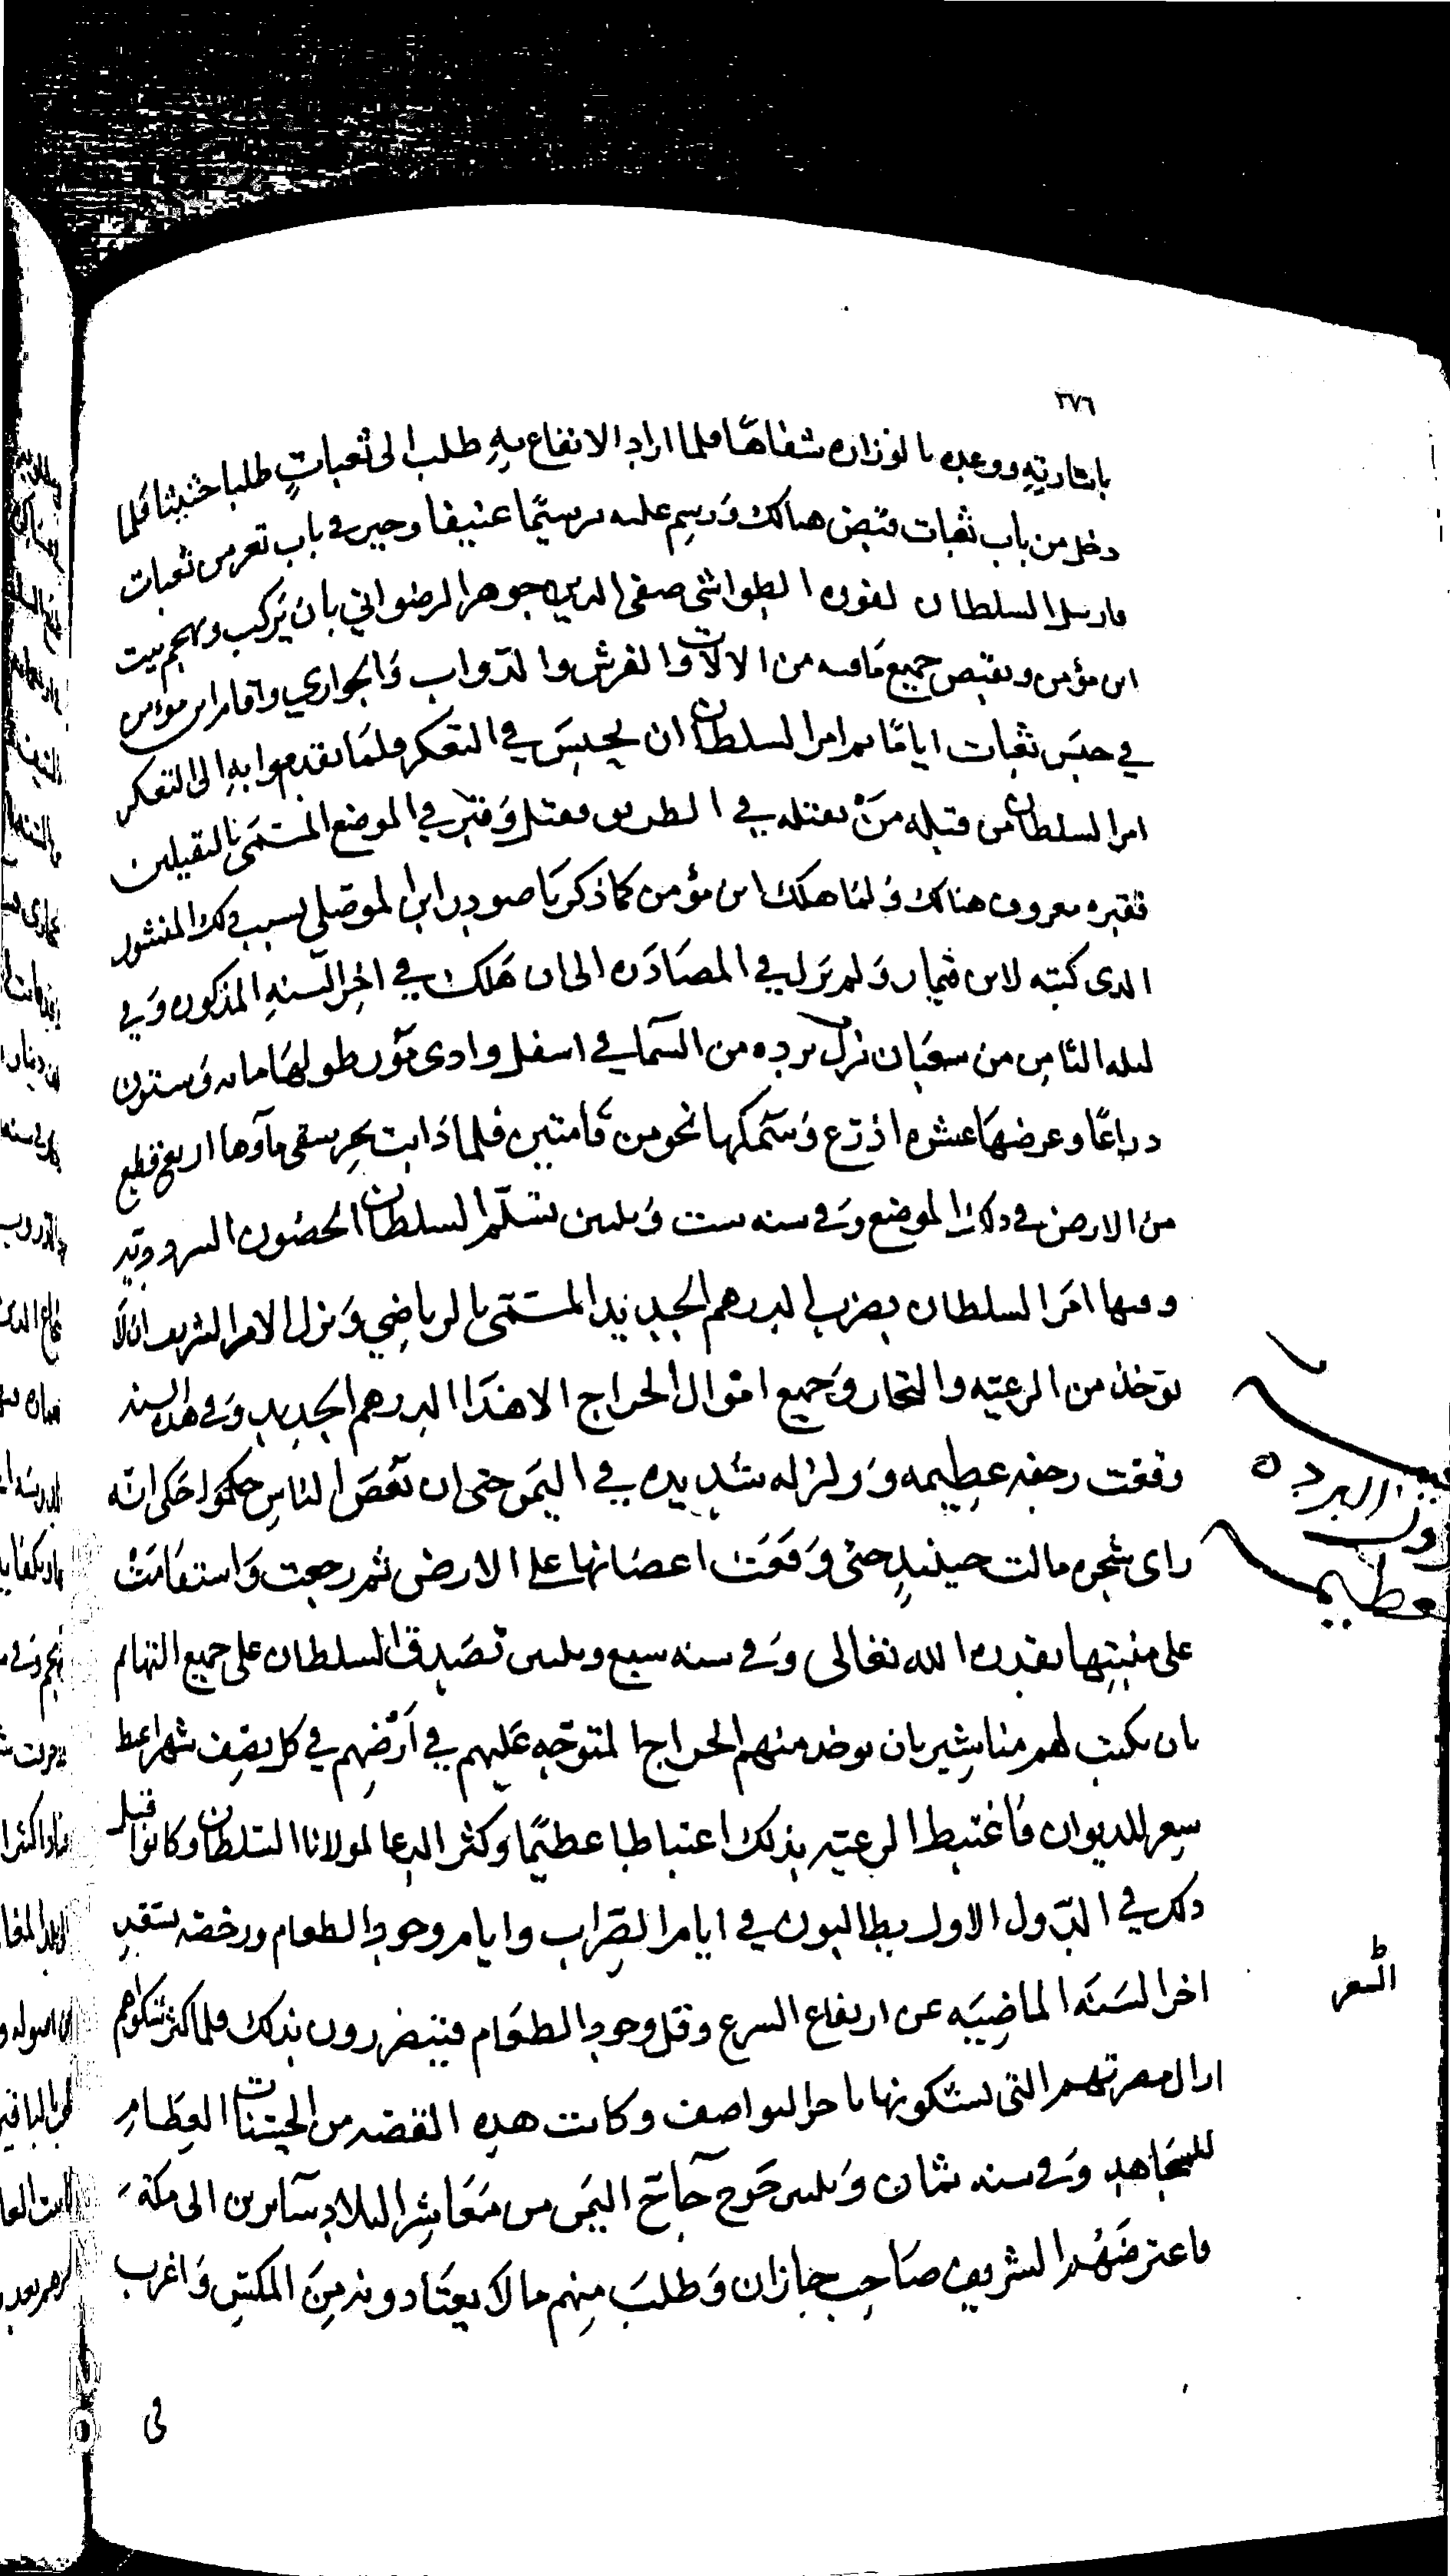 ٣٧٦
باشارته ووعده بالوزاره شفاهًا فلما اراد الايقاع به طلب الى ثعبات طلبا حثيثا فلما
دخل من باب ثعبات قبض هنالك ورسم عليه ترسيمًا عنيفا وحير في باب تعز من ثعبات
فارسل السلطان لفوره الطواشي صفي الدين جوهر الرضواني بان يركب ويهجم بيت
ابن مؤمن ويقبض جميع ما فيه من الالات والفرش والدواب والجواري واقام ابن مؤمن
في حبس ثعبات ايامًا ثم امر السلطان ان يحبس في التعكر فلما تقدموا به الى التعكر
امر السلطان من قبله من يقتله في الطريق فقتل وقبر في الموضع المسمى بالتقيلين
فقبره معروف هنالك ولما هلك ابن مؤمن كما ذكرنا صودر ابن الموصلي بسبب ذلك المنشور
الذي كتبه لابن وَلم يزل في المصادره الى ان هَلك في اخر السنه المذكوره وَفي
ليله الثامن من شعبان نزل برده من السما في اسفل وادي مور طولها مايه وَستون
ذراعًا وعرضها عشره اذرع وَسمكها نحو من قامتين فلما ذابت سقى ماوها اربع قطع
من الارض في ذلك الموضع وَفي سنه ست وَثلثين تسلّم السلطان الحصون السردديه
وفيها امر السلطان بضرب الدرهم الجديد المسمى بالرياضي وَنزل الامر الشريف ان لا
يوخذ من الرعيه والتجار وَجميع اموال الخراج الا هذا الدرهم الجديد وَفي هذه السنه
وقعت رجفه عظيمه وَزلزله شديده في اليمن حتى ان بعض الناس حكى انه
راى شجره مالت حينئذٍ حتى وَقعت اغصانها على الارض ثم رجعت وَاستقامت
على منبتها بقدره الله تعالى وَفي سنه سبع وثلثين تصدق السلطان على جميع التهايم
بان يكتب لهم مناشير بان يوخذ منهم الخراج المتوجه عليهم في ارضهم في كل نصف شهر اعط
سعر للديوان فاغتبط الرعيه بذلك اغتباطا عظيمًا وكثر الدعا لمولانا السلطان وكانوا قبل
ذلك في الدول الاول يطالبون في ايام الصّراب وايام وجود الطعام ورخصه بنقد
اخر السنه الماضيه عن ارتفاع السرع وقل وجود الطعام فيتضررون بذلك فلما كثر شكواهم
ازال مضرتهم التي يشكونها باخر النواصف وكانت هذه القضه من الحسنات العظام
للمجاهد وَفي سنه ثمان وَثلثين خرج حاج اليمن من معاشر البلاد سايرين الى مكه
فاعترضهم الشريف صاحب جازان وَطلب منهم ما لا يعتادونه من المكس وَاغرب
في
نزول البرده
العظيمه
السعر